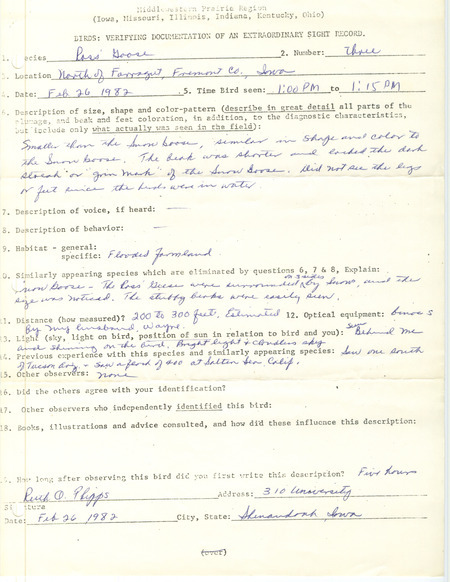 Middlewestern Prairie Region
(Iowa, Missouri, Illinois, Indiana, Kentucky, Ohio)
BIRDS: VERIFYING DOCUMENTATION OF AN EXTRAORDINARY SIGHT RECORD.
1. Species Ross' Goose 2. Number: Three
3. Location North of Farragut, Fremont Co., Iowa
4. Date: Feb 26 1982 5. Time bird seen: 1:00 PM to 1:15 PM
6. Description of size, shape and color-pattern (describe in great detail all parts of the
plumage, and beak and feet coloration, in addition, to the diagnostic characteristics,
but include only what actually was seen in the field):
Smaller than the Snow Goose, similar in shape and color to
the Snow Goose. The beak was shorter and lacked the dark
streak or "grin mark" of the Snow Goose. Did not see the legs
or feet since the birds were in water.
7. Description of voice, if heard: —
8. Description of behavior: —
9. Habitat - general:
specific: Flooded farmland
10. Similarly appearing species which are eliminated by questions 6, 7 & 8, Explain:
Snow Goose - The Ross' Geese were surrounded on 3 sides by Snows, and the
size was noticed. The stubby beaks were easily seen.
11. Distance (how measured)? 200 to 300 feet. Estimated 12. Optical equipment: binocs
By my husband, Wayne.
13. Light (sky, light on bird, position of sun in relation to bird and you): Sun Behind me
and shining on the bird. Bright light & cloudless sky
14. Previous experience with this species and similarly appearing species: Saw one south
of Tabor, Saw a flock of 400 at Salton Sea Calif.
15. Other observers: none
16. Did the others agree with your identification?
17. Other observers who independently identified this bird:
18. Books, illustrations and advice consulted, and how did these influnce this description:
How long after observing this bird did you first write this description? Five hours
Ruth O. Phipps Address: 310 University
Signature
Date: Feb 26 1982 City, State: Shenandoah, Iowa
(over)